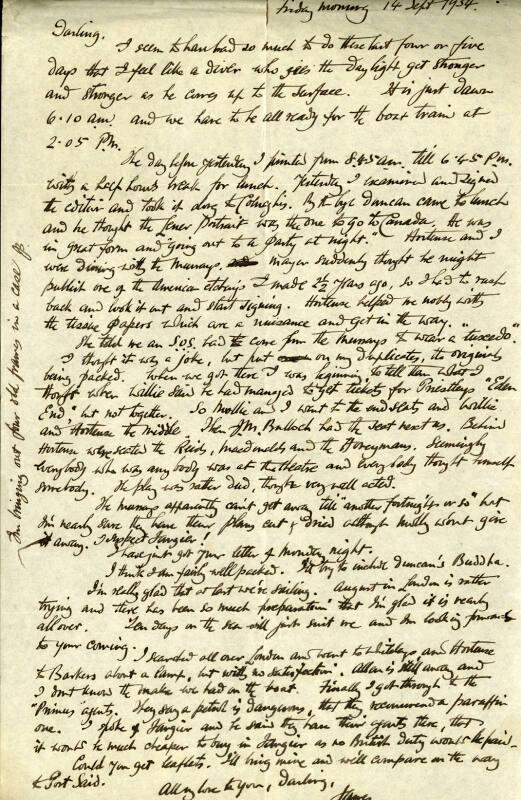 Friday morning 14 Sept 1934.
Darling.
I seem to have had so much to do these last four or five
days that I feel like a diver who sees the daylight get stronger
and stronger as he comes up to the surface. It is just dawn
6.10 am and we have to be all ready for the boat train at
2.05 P.m.
The day before yesterday I printed from 8.45 am. till 6.45 P.m.
with a half hours break for lunch. Yesterday I examined and signed
the edition and took it along to Colnaghis. By the bye Duncan came to lunch
and he thought the Portrait was the one to go to Canada. He was
in great form and going out to a party at night. Hortense and I
were dining with the Murrays, Mayer suddenly thought he might
publish one of the American etchings I made 2½ years ago, so I had to rush
back and look it out and start signing. Hortense helped me nobly with
the tissue papers which are a nuisance and get in the way.
She told me an S.O.S. had come from the Murrays "to wear a tuxedo."
I thought it was a joke, but put on my duplicates, the originals
being packed. When we got there I was beginning to tell them what I
thought when Willie said he had managed to get tickets for Priestley's "Eden
End," but not together. So Mollie and I went to the end seats and Willie
and Hortense the middle. Then J.M. Bulloch had the seat next us. Behind
Hortense were seated the Reids, Macdonalds and the Honeymans. Seemingly
everybody who was anybody was at the theatre and everybody thought himself
somebody. The play was rather , though very well acted.
The Murrays apparently can't get away till "another fortnight or so" but
I'm nearly sure they have their plans cut & dried although Molly wont give
it away. I suspect Tangier!
I have just got your letter of Monday night.
I think I am fairly well packed. I'll try to include Duncan's Buddha.
I'm really glad that at last we're sailing. August in London is rather
trying and there has been so much preparation that I'm glad it is nearly
all over. Ten days on the sea will just suit me and I'm looking forward
to your coming.
I searched all over London and went to Whiteleys and Hortense
to Barkers about a lamp, but with no satisfaction. Allan is still away and
I don't know the make we had on the boat. Finally I got through to the
"Primus" agents. They say a petrol is dangerous, that they recommend a paraffin
one. I spoke of Tangier and he said they have their agents there, that
it would be much cheaper to buy in Tangier as no British duty would be paid.
Could you get leaflets. I'll bring mine and we'll compare on the way
to Port Said.
All my love to you, Darling,
James
I'm bringing out four old frames in a case